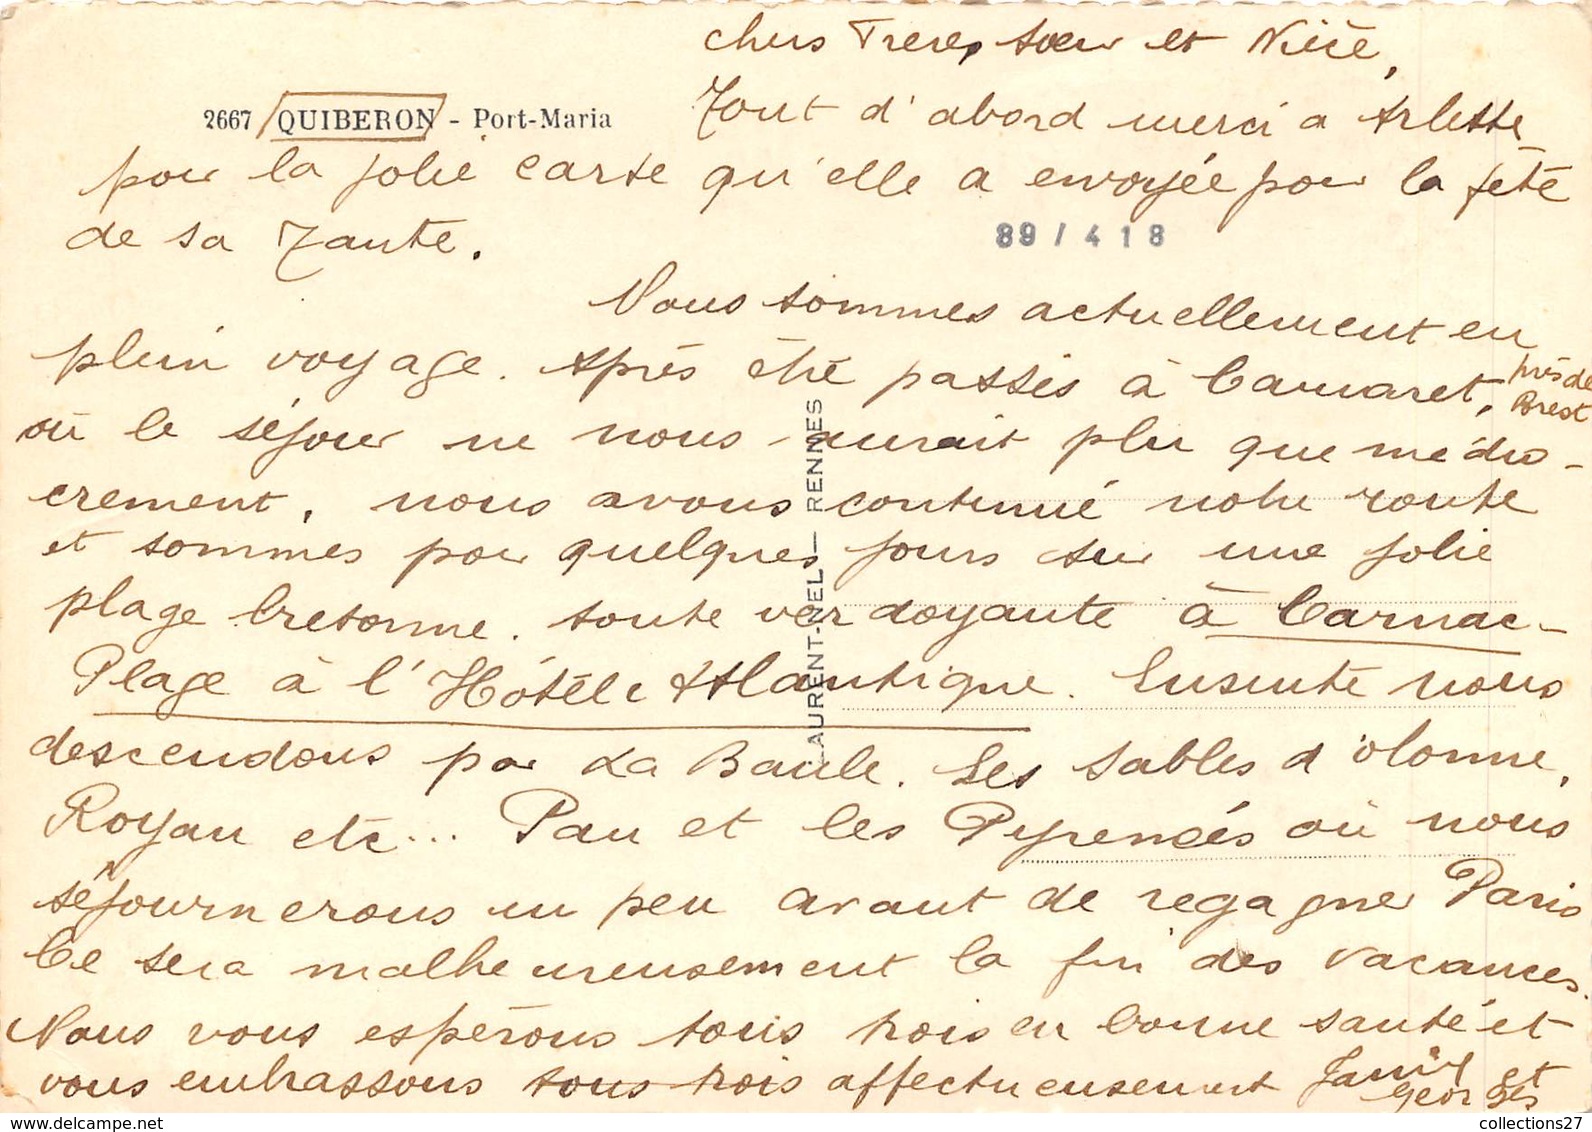 chers Frere, soeur et Nièce,
2667 QUIBERON - Port-Maria
Tout d'abord merci a Arlette
pour la jolie carte qu'elle a envoyée pour la fête
de sa Tante.
89 / 418
Nous sommes actuellement en
plein voyage. Après être passés à Camaret, près de
Brest
où le séjour ne nous aurait plu que médio-
crement, nous avons continué notre route
et sommes pour quelques jours sur une jolie
plage bretonne. toute verdoyante à Carnac-
Plage à l'Hôtel Atlantique. Ensuite nous
descendons par La Baule. Les Sables d'olonne,
Royan etc... Pau et les Pyrenées où nous
séjournerons un peu avant de regagner Paris
Ce sera malheureusement la fin des vacances.
Nous vous espérons tous trois en bonne santé et
vous embrassons tous trois affectueusement
et
Georges
LAURENT-NEL — RENNES
collections27